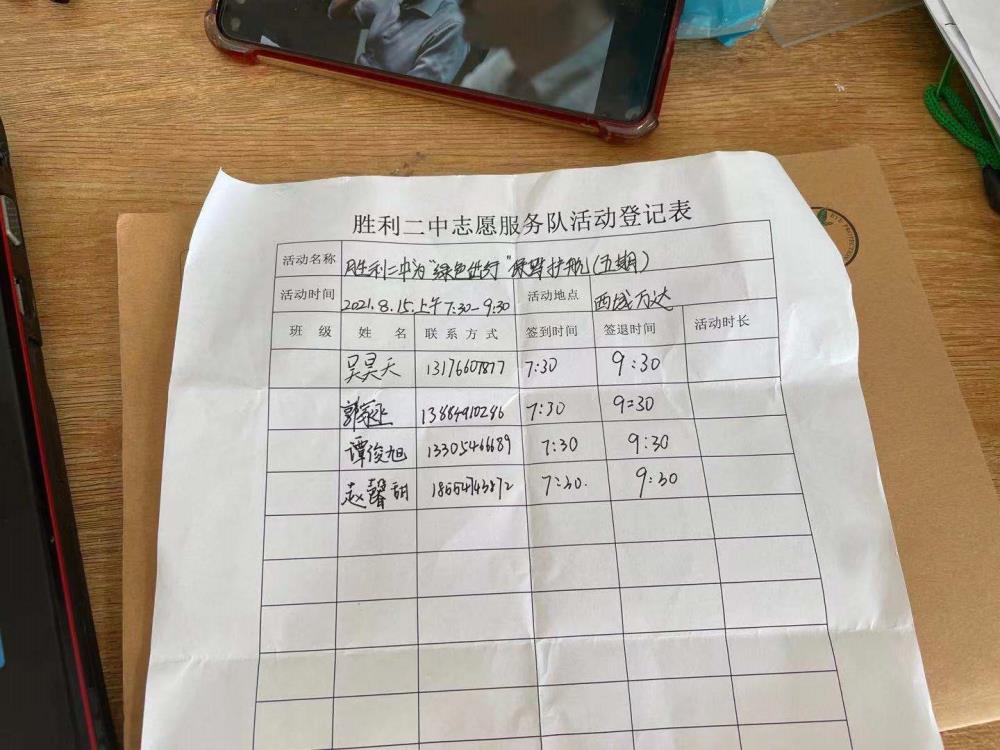 胜利二中志愿服务队活动登记表
活动名称 胜利二中为"绿色出行"保驾护航(五期)
活动时间 2021.8.15.上午7:30-9:30 活动地点 西城万达
班级 姓名 联系方式 签到时间 签退时间 活动时长
吴昊天 13176607877 7:30 9:30
郭 13884910246 7:30 9:30
谭俊旭 13305466689 7:30 9:30
赵馨甜 18654743872 7:30. 9:30